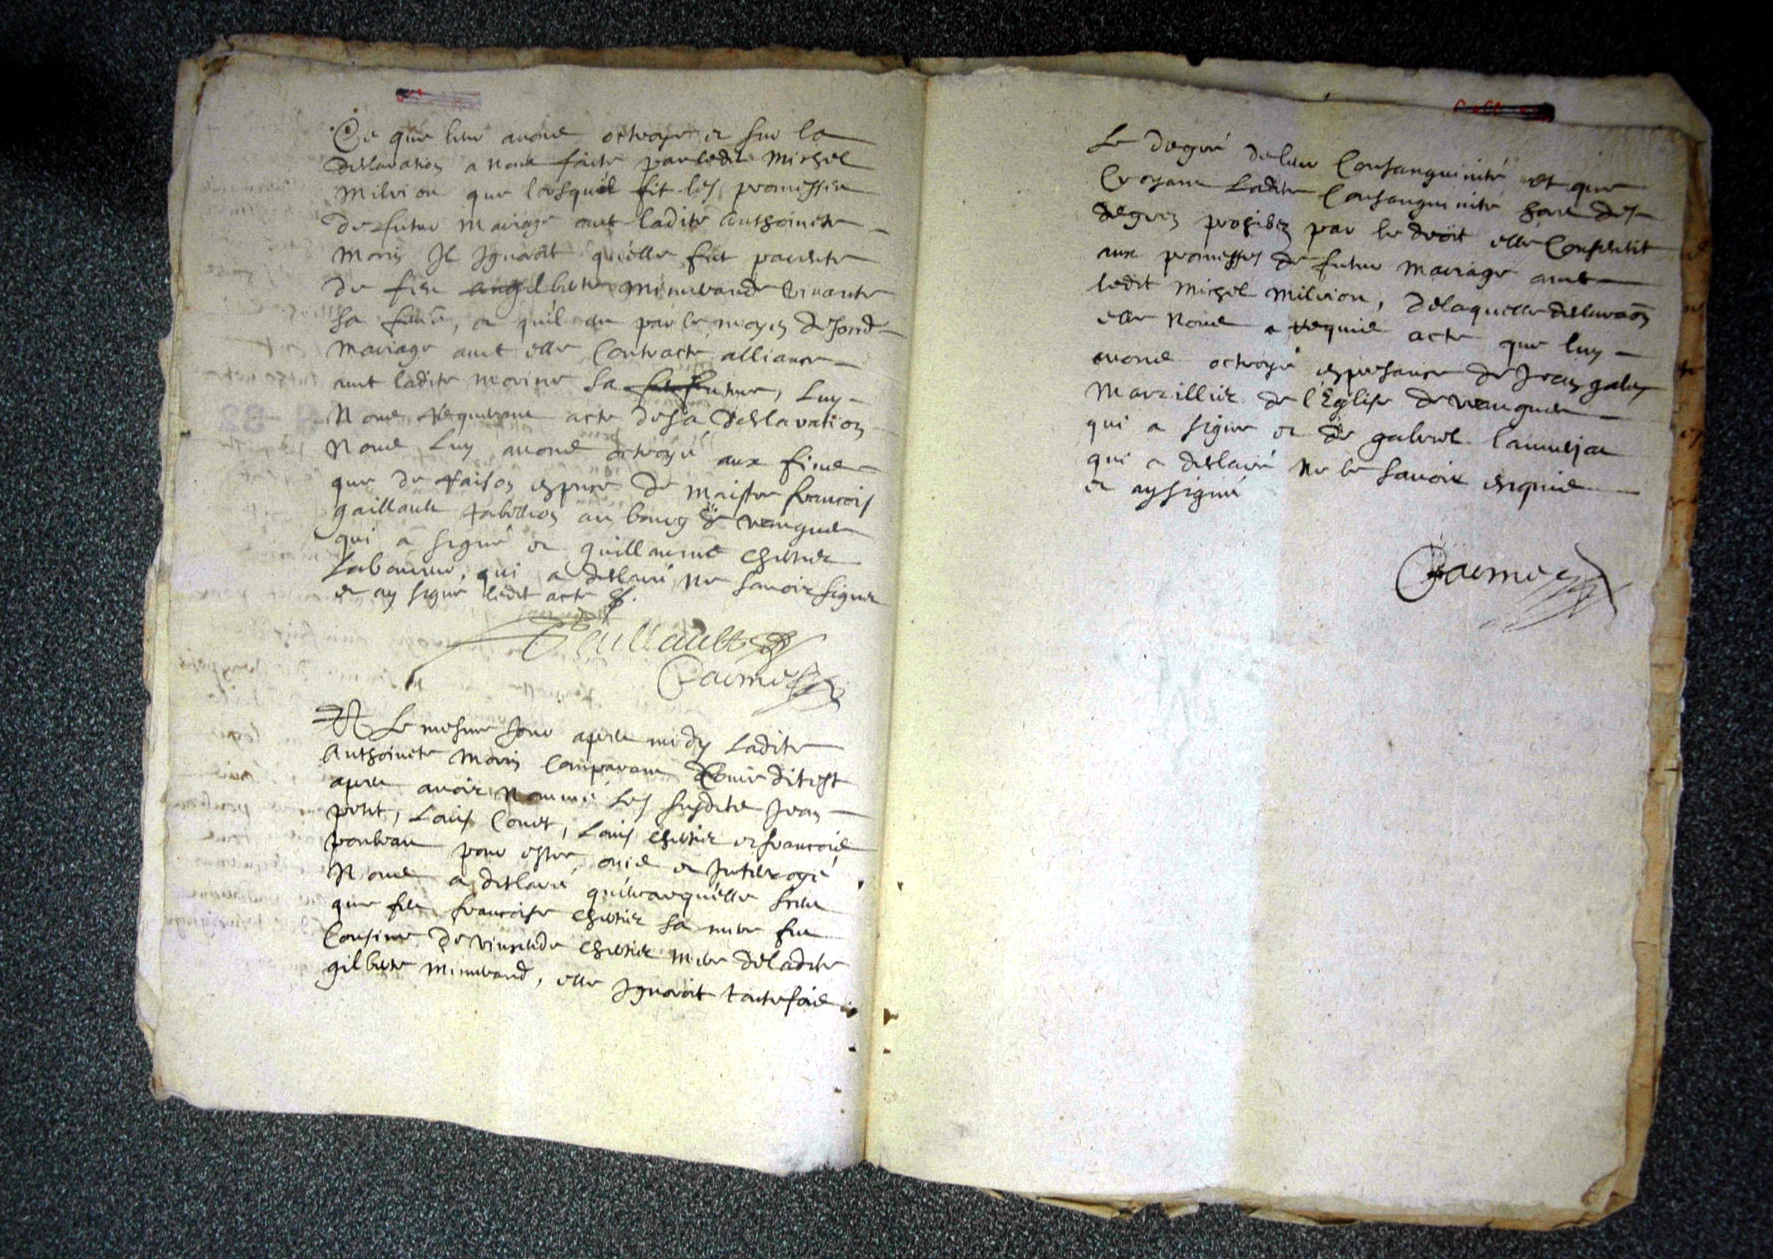 Ce que leur avons octroyé et sur la
declaration a nous faite par ledit Michel
Milirion que lorsquil fit les promesses
de futur mariage avec ladite Anthoinete
Morin Il Ignoroit quelle fut parente
de feu gilberte Minerande vivante
sa feme, et quil eu par le moyen de
mariage avec elle Contracté alliance
avec ladite Morine sa future, Luy
Nous Requerant acte de sa declaration
Nous Luy avons octroyé aux fines
que de Raison es pnce de Maistre francois
gaillault tabellion au bourg de
qui a signé et guillaume chestier
Laboureur, qui a declaré Ne savoir signer
et ay signé ledit acte
Gaillault
Et Le mesme Jour apres midy Ladite
Anthoinete Morin Comparant
apres avoir Nommé Les susdits Jean
petit, Louis Couet, Louis chestier et francois
ponteau pour estre ouis et Interogé
Nous a declaré quencorequelle sceu
que feu francoise chestier sa mere fut
Cousine de chestier mere deladite
gilberte Minerand, elle Ignoroit toutefois
Le degré de leur Consanguinité et que
Croyant Ladite Consanguinité hors des
degrez prohibez par le droit elle Consentit
aux promesses de futur mariage avec
ledit Michel Milirion, de laquelle declaraon
elle Nous a Requis acte que luy
avons octroyé en presance de Jean
Marzillier de l'Eglise de
qui a signé et de gabriel
qui a declaré Ne le savoir enquis
et ay signé